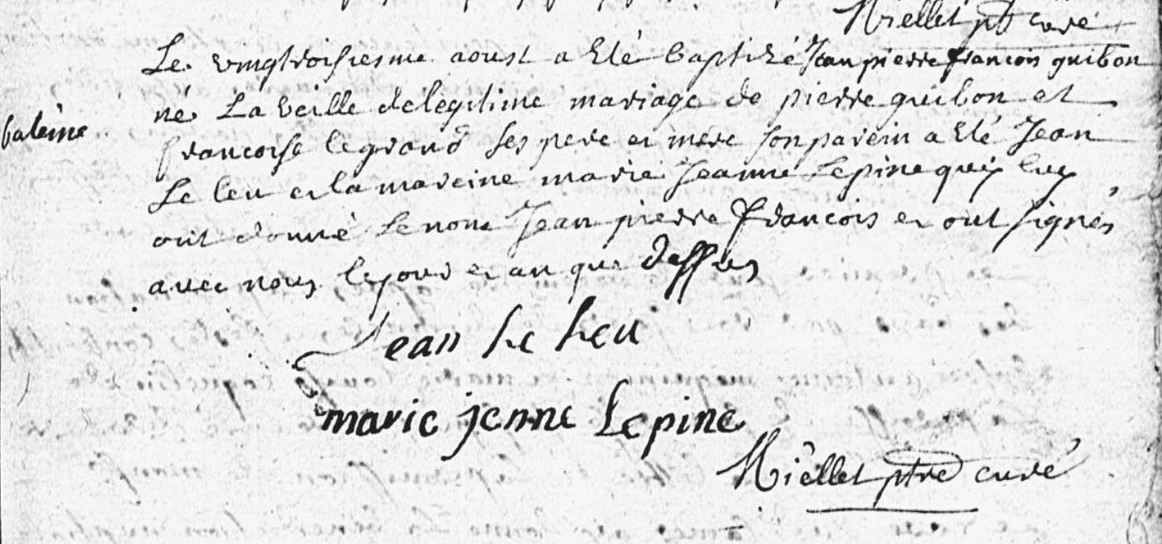 Miellet ptre curé
Le vingtroisiesme aoust a Eté baptizé Jean pierre francois guibon
né La veille de legitime mariage de pierre guibon et
francoise legrand ses pere et mere son parein a Eté Jean
Le leu et la mareine marie Jeanne Lepine qui luy
ont donné Le nom Jean pierre francois et ont signés
avec nous le jour et an que dessus
Jean Le Leu
marie jenne Lepine
Miellet ptre curé